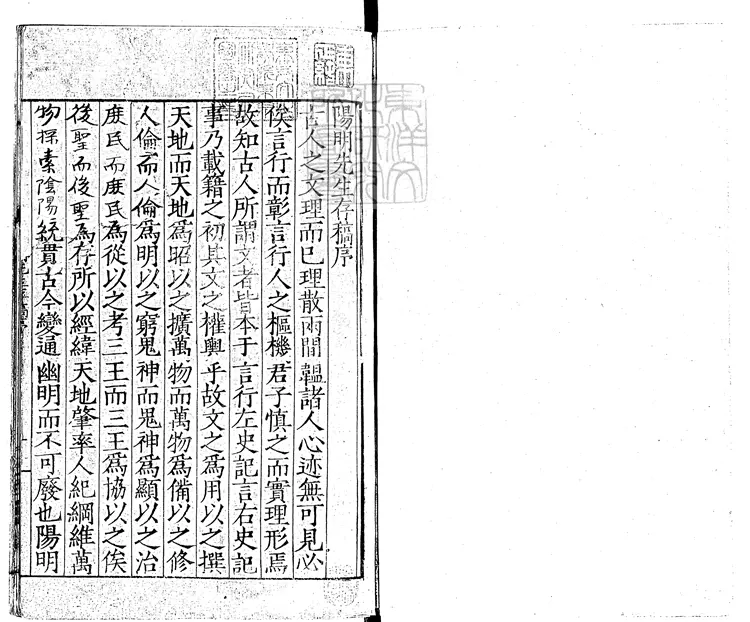 陽明先生存稿序
古人之文理而已理散兩間韞諸人心迹無可見必
俟言行而彰言行人之樞機君子慎之而實理形焉
故知古人所謂文者皆本于言行左史記言右史記
事乃載籍之初其文之權輿乎故文之爲用以之撰
天地而天地爲昭以之擴萬物而萬物爲備以之修
人倫而人倫爲明以之窮鬼神而鬼神爲顯以之治
庶民而庶民爲從以之考三王而三王爲協以之俟
後聖而後聖爲存所以經緯天地肇率人紀綱維萬
物探索陰陽統貫古今變通幽明而不可廢也陽明